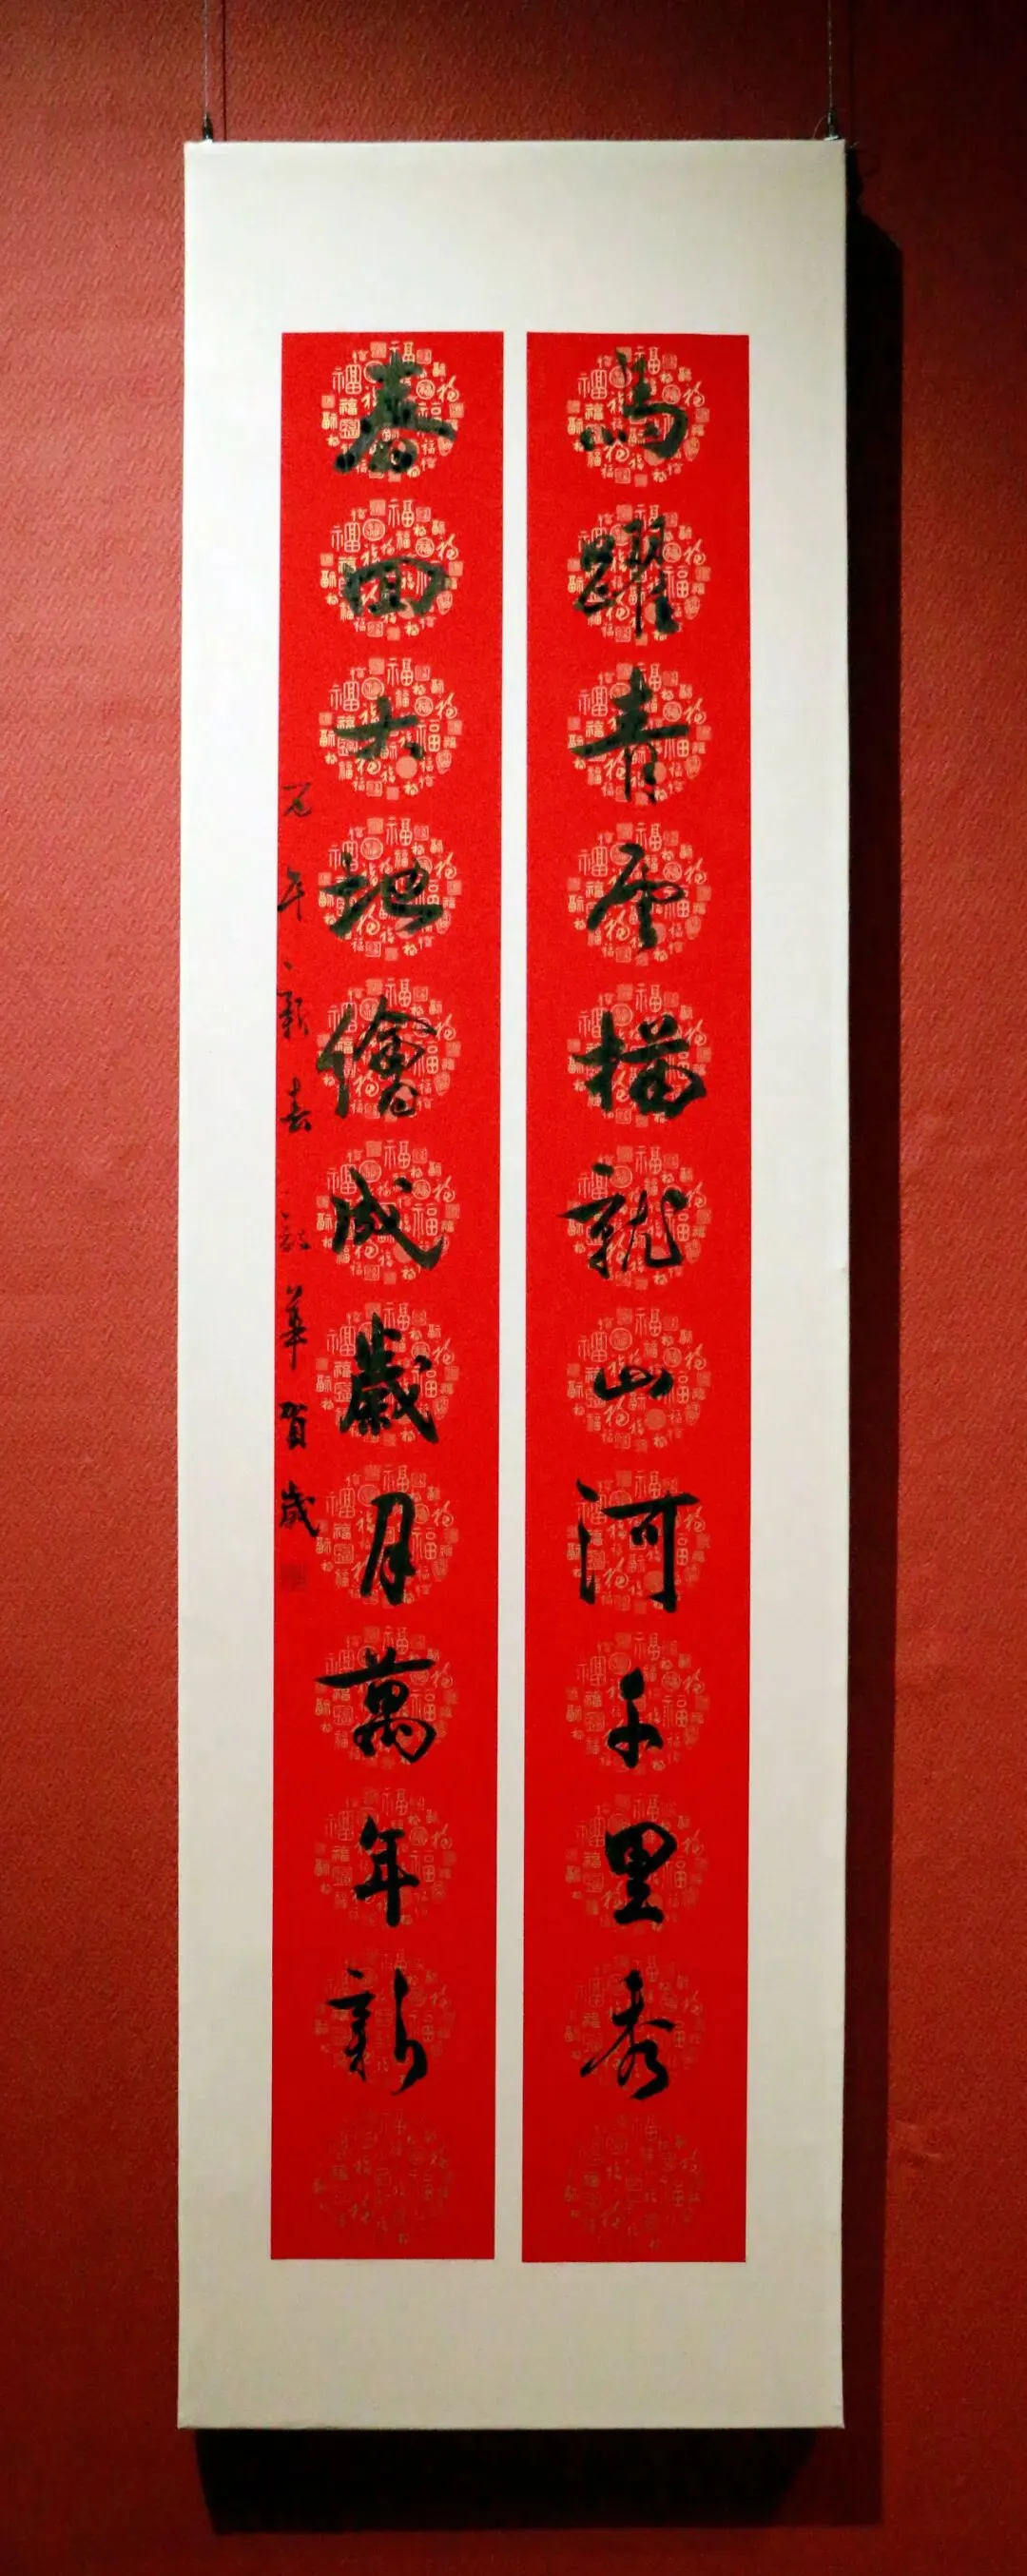 馬躍青雲描就山河千里秀
春回大地繪成歲月萬年新
年新春華賀歲